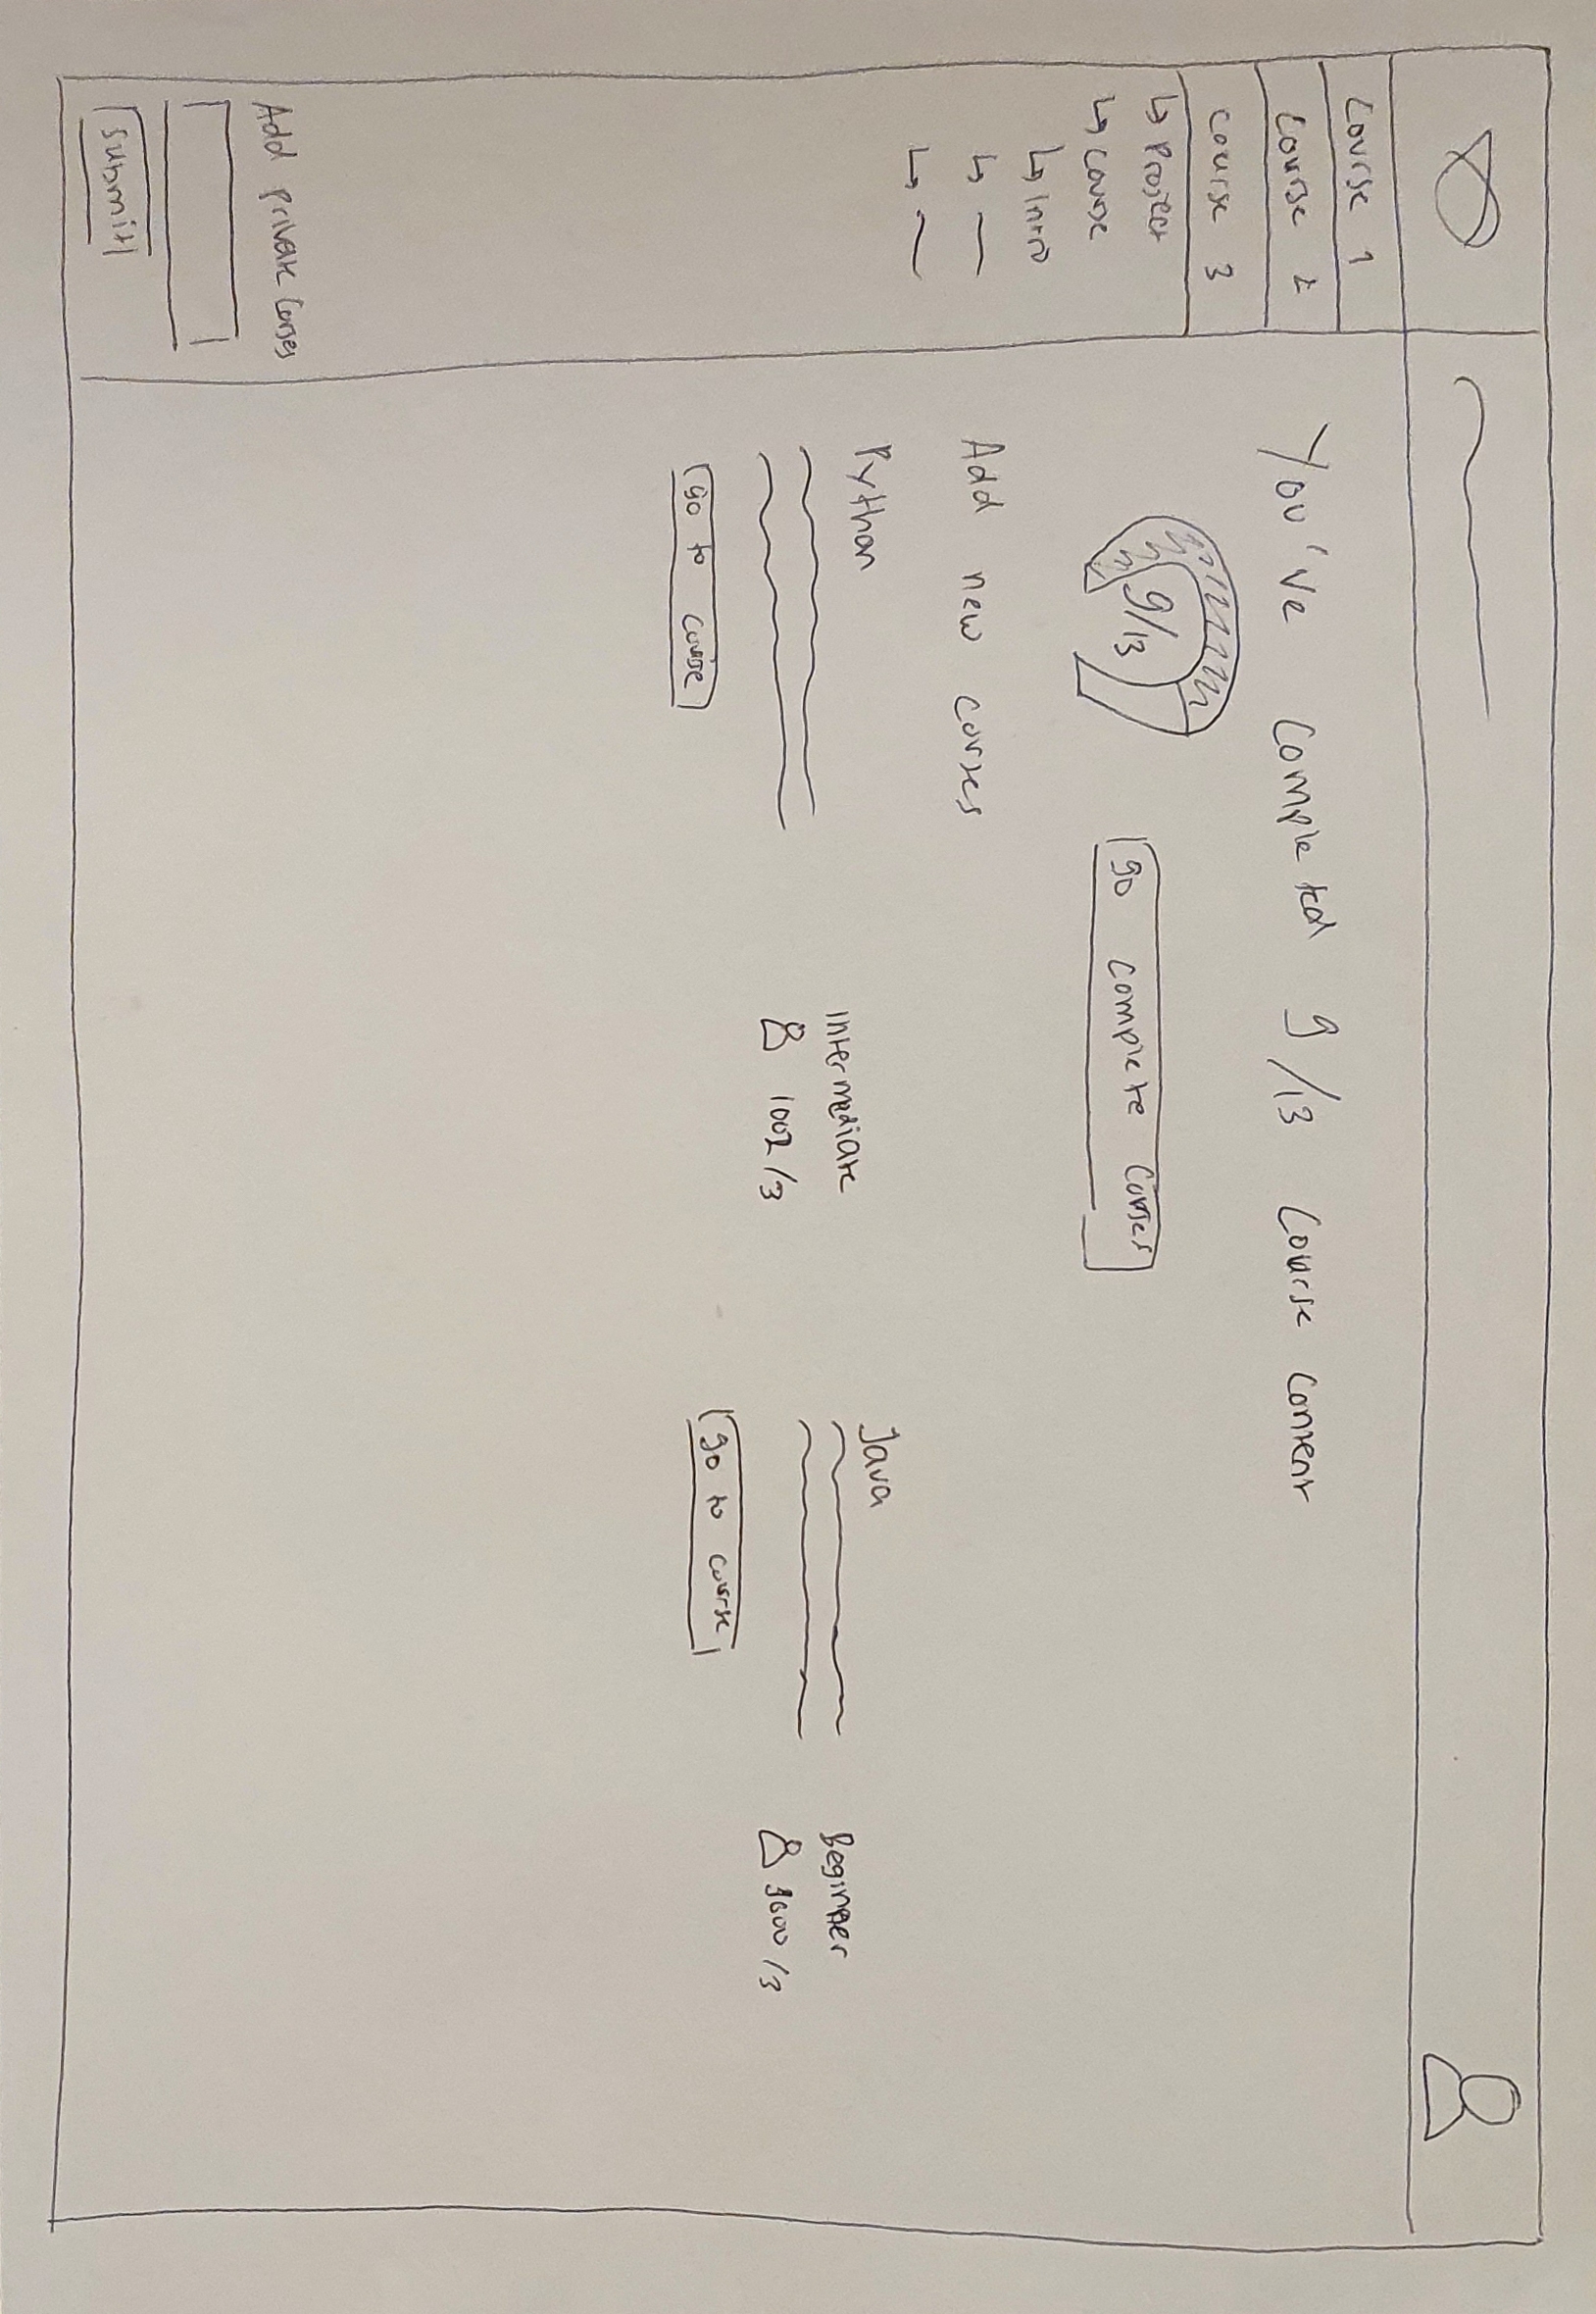 Course 1
Course 2
Course 3
↳ Project
↳ Course
↳ Intro
↳
↳
Add private Corses
Submit
You've Completed 9/13 Course Content
9/13
go complete Corses
Add new corses
Python
Intermediate
1002/3
go to course
Java
Beginner
/3
go to course